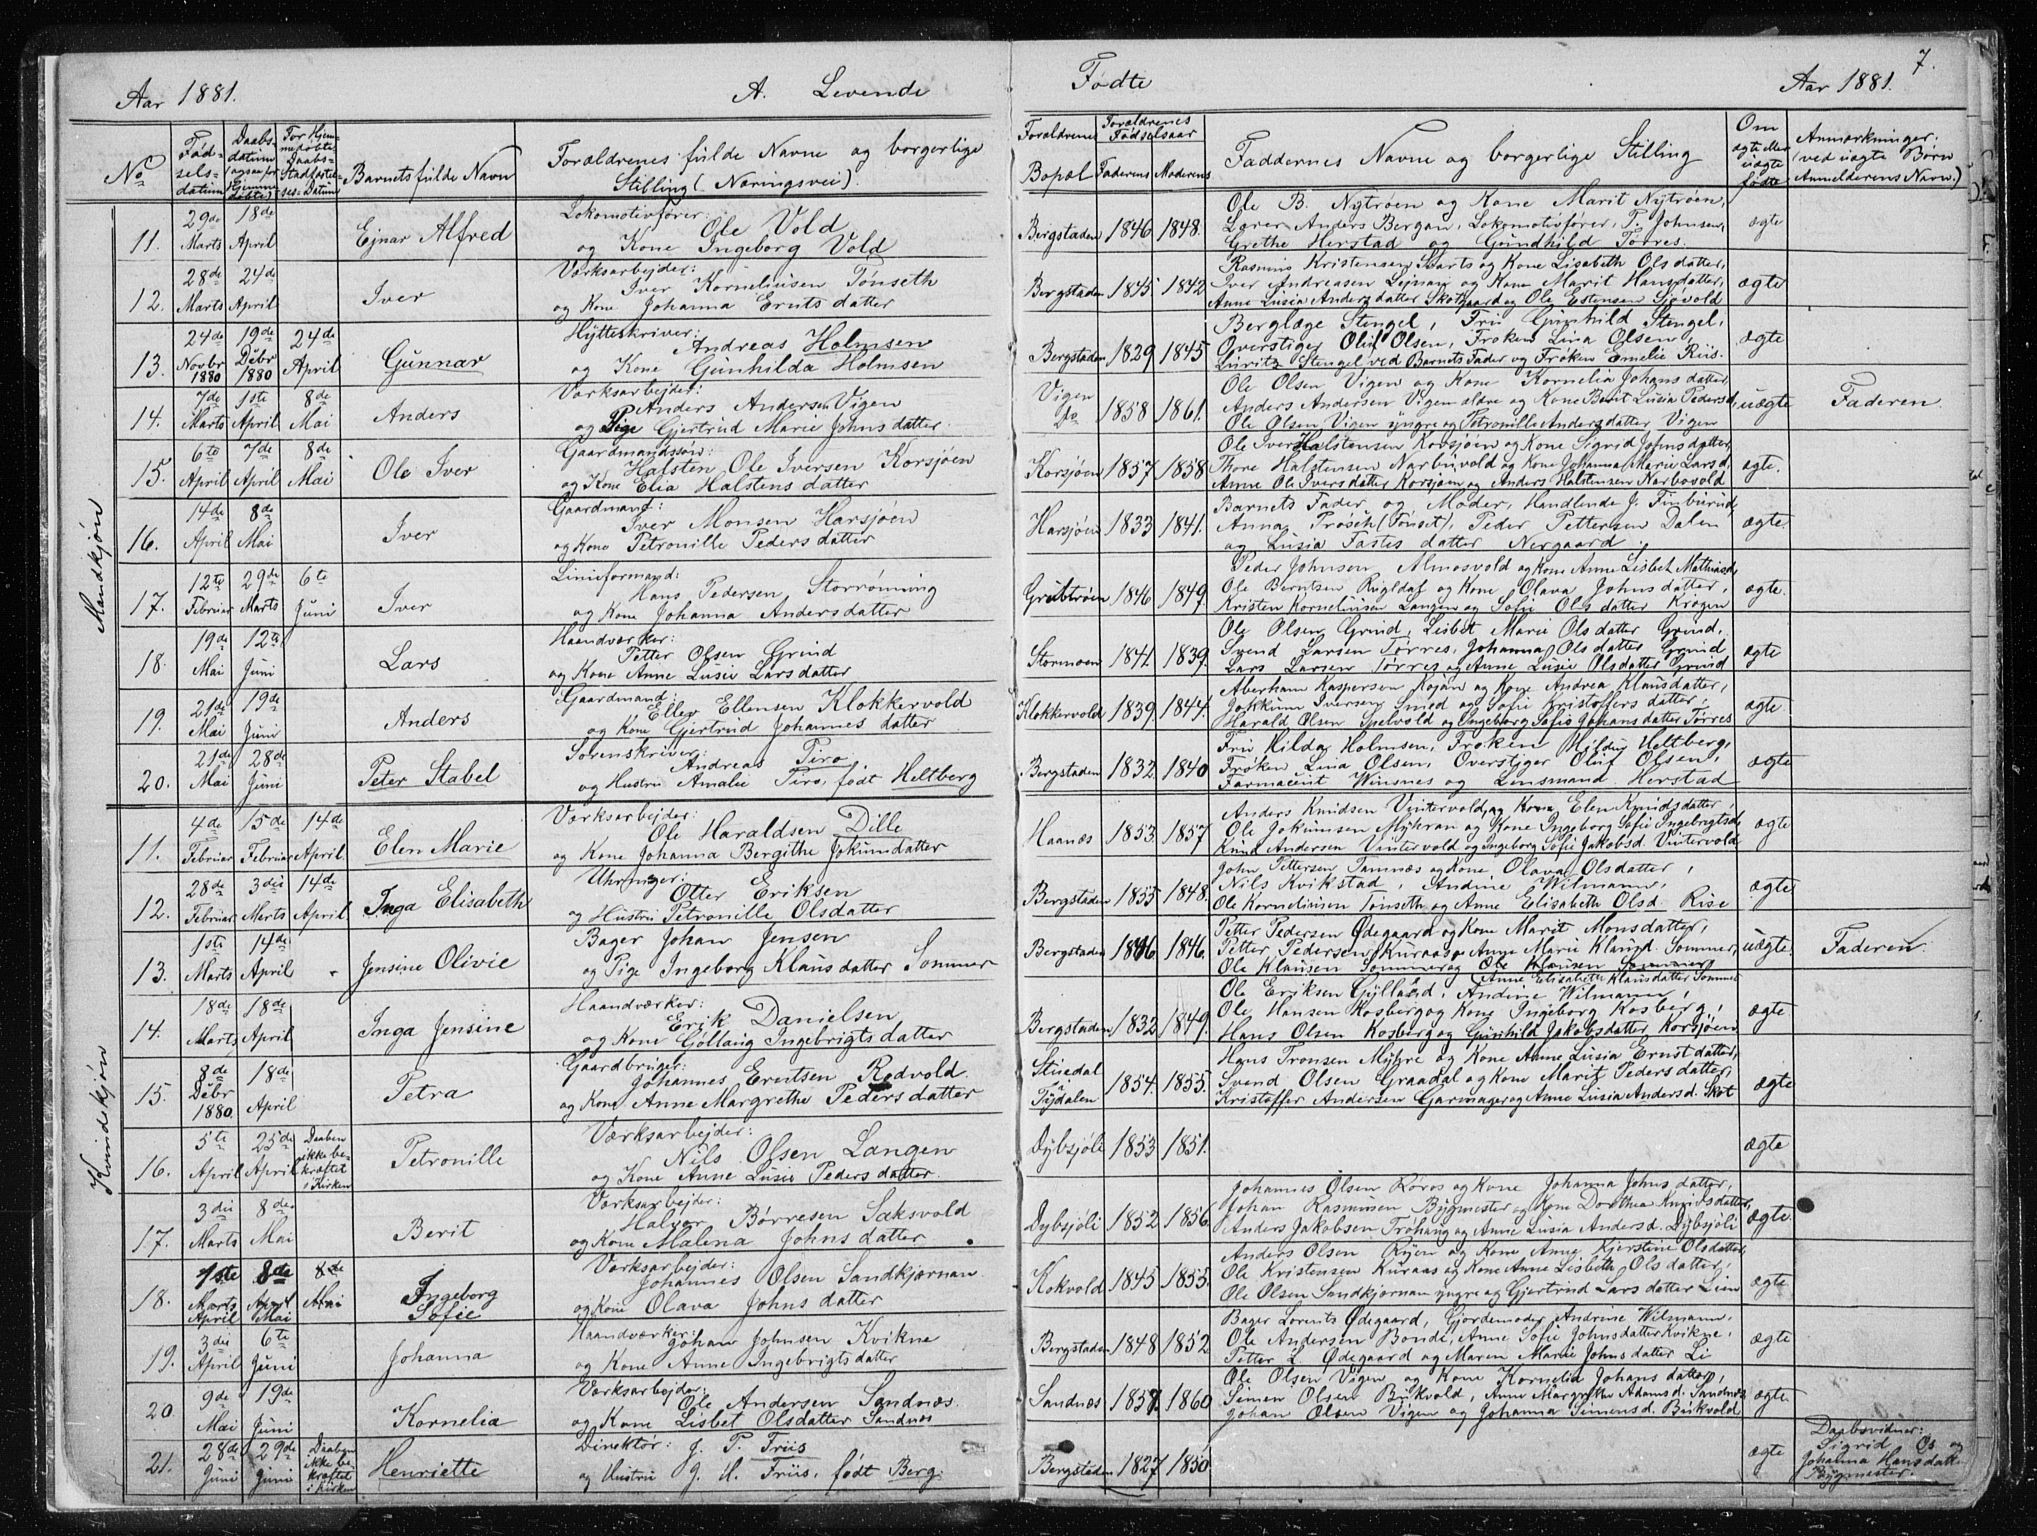 Aar 1881. A. Levende Fødte Aar 1881. 7.
No Fød-sels-datum Daabs-datum Barnets fulde Navn Forældrenes fulde Navne og borgerlige Stilling (Næringsvei). Forældrenes Bopæl Forældrenes Fødselsaar Faderens Moderens Faddernes Navne og borgerlige Stilling Om ægte eller uægte fødte Anmærkninger: (ved uægte Børn Anmelderens Navn.)
Mandkjøn
Lokomotivfører: Ole B. Nytrøen og Kone Marit Nytrøen,
11. 29de Marts 18de April Ejnar Alfred Ole Vold Bergstaden 1846 1848. Lærer Anders Bergan, Lokomotivfører T. Johnsen, ægte
og Kone Ingeborg Vold Grethe Herstad og Gunhild Tørres.
Værksarbejder: Rasmus Kristensen Svarts og Kone Lisabeth Olsdatter,
12. 28de Marts 24de April Iver Iver Korneliusen Tønseth Bergstaden 1845 1842 Iver Andreasen og Kone Marit Hansdatter, ægte
og Kone Johanna Ernts datter Anne Lusia Andersdatter Skotgaard og Ole Estensen Sjøvold
Hytteskriver: Berglæge Stengel, Fru Gunhild Stengel,
13. 24de Novbr 1880 19de Debr 1880 24de April Gunnar Andreas Holmsen Bergstaden 1829 1845 Overstiger Oluf Olsen, Frøken Lina Olsen, ægte
og Kone Gunhilda Holmsen Stengel ved Barnets Fader og Frøken Emelie Riis.
Værksarbejder: Ole Olsen Vigen og Kone Kornelia Johans datter,
14. 7de Marts 1ste April 8de Mai Anders Anders Andersen Vigen Vigen 1858 1861. Anders Andersen Vigen ældre og Kone Berit Lusia Pedersd, uægte Faderen
og Pige Gjertrud Marie Johns datter. Ole Olsen Vigen yngre og Petronille Anders datter Vigen
Gaardmandssøn: Ole Iver Halstensen Korsjøen og Kone Sigrid Johns datter,
15. 6te April 7de April 8de Mai Ole Iver Halsten Ole Iversen Korsjøen Korsjøen 1857 1858 Thore Halstensen Narbuvold og Kone Johanna Marie Lars d, ægte.
og Kone Elia Halstens datter Anne Ole Ivers datter Korsjøen og Anders Halstensen Narbovold
Gaardmand: Barnets Fader og Moder, Handlende J. Finburud,
16. 14de April 8de Mai Iver Iver Monsen Harsjøen Harsjøen 1833 1841. Anna Prosch (Tønset), Peder Pettersen Dalen ægte
og Kone Petronille Peders datter og Lusia Fastes datter Nergaard
Linieformand: Peder Johnsen Almosvold og Kone Anne Lisbet Mathiasd,
17. 12te Februar 29de Marts 6te Juni Iver Hans Pedersen Storrønning Grubtrøen 1846 1849. Ole Berntsen og Kone Olava Johns datter, ægte.
og Kone Johanna Andersdatter Kristen Korneliusen Langen og Sofie Ols datter Krogen
Haandværker: Ole Olsen Grind, Lisbet Marie Olsdatter Grind,
18. 19de Mai 12te Juni Lars Petter Olsen Grind Stormoen 1841. 1839. Svend Larsen Tørres, Johanna Olsdatter Grind ægte
og Kone Anne Lusie Larsdatter Lars Larsen Tørres og Anne Lusie Olsdatter Grind
Gaardmand: Aberham Kaspersen Kojan og Kone Andrea Klausdatter,
19. 21de Mai 19de Juni Anders Ellev Ellensen Klokkervold Klokkervold 1839. 1844. Jokkum Iversen Smed og Sofie Kristoffers datter, ægte.
og Kone Gjertrud Johannes datter Harald Olsen Spelvold og Ingeborg Sofie Johans datter Tørres
Sorenskriver: Fru Hilda Holmsen, Frøken Hildur Heltberg,
20. 21de Mai 28de Juni Peter Stabel Andreas Piro Bergstaden 1832. 1840 Frøken Lina Olsen, Overstiger Oluf Olsen, ægte
og Hustru Amalie Piro, født Heltberg Farmaceut Winsnes og Lensmand Herstad
Kvindekjøn
Værksarbejder: Anders Knudsen Vintervold og Kone Elen Knudsdatter,
11. 4de Februar 15de Februar 14de April Elen Marie Ole Haraldsen Dille Haanæs 1853. 1857 Ole Jokumsen Myhran og Kone Ingeborg Sofie Ingebrigtsd, ægte
og Kone Johanna Bergithe Jokumdatter Knud Andersen Vintervold og Ingeborg Sofie Jakobsd. Vintervold
John Pettersen Tamnæs og Kone Olava Olsdatter,
12. 28de Februar 3die Marts 14de April Inga Elisabeth Otter Eriksen Bergstaden 1855. 1848. Nils Kvikstad, Andrine Wilmann, ægte
og Hustru Petronille Olsdatter Ole Korneliusen Tønseth og Anne Elisabeth Olsd. Rise
Petter Pedersen Ødegaard og Kone Marit Monsdatter,
13. 1ste Marts 14de April Jensine Olivie Bager Johan Jensen Bergstaden 1846 1846. Petter Pedersen Kuraas og Anne Marie Klausd. Sommer, uægte Faderen
og Pige Ingeborg Klaus datter Sommer Ole Klausen Sommer og Ole Klausen Sommer
Anne Elisabeth Klausdatter Sommer
Haandværker: Ole Eriksen Gyllaad, Andrine Wilmann,
14. 18de Marts 18de April Inga Jensine Erik Danielsen Bergstaden 1832 1849. Ole Hansen Kosberg og Kone Ingeborg Kosberg, ægte
og Kone Gollaug Ingebrigts datter Hans Olsen Kosberg og Gunhild Jakobsdatter Korsjøen
Gaardbruger: Hans Tronsen Myhre og Kone Anne Lusia Ernstdatter,
15. 8de Debr 1880. 18de April Petra Johannes Erntsen Rødvold Stuedal i Tydalen 1854. 1855. Svend Olsen Graadal og Kone Marit Pedersdatter, ægte
og Kone Anne Margrethe Peders datter Kristoffer Andersen Garmager og Anne Lusia Andersd. Skot
Værksarbejder:
16. 5te April 25de April Daaben ikke be-kræftet i Kirken Petronille Nils Olsen Langen Dybsjøli 1853 1851. ægte
og Kone Anne Lusie Peders datter.
Værksarbejder: Johannes Olsen Røros og Kone Johanna Johns datter,
17. 3die Marts 8de Mai Berit Halvor Børresen Saksvold Dybsjøli 1852 1856. Johan Rasmusen Bygmester og Kone Dorothea Knudsdatter, ægte.
og Kone Malena Johns datter Anders Jakobsen Trøhaug og Anne Lusia Andersd. Dybsjøli
Værksarbejder: Anders Olsen Ryen og Kone Anne Kjerstine Olsdatter,
18. 1ste Marts April 8de April Mai 8de Mai Ingeborg Sofie Johannes Olsen Sandkjærnan Kokvold 1845 1855. Ole Kristensen Kuraas og Kone Anne Lisbeth Olsdatter, ægte
og Kone Olava Johns datter Ole Olsen Sandkjærnan yngre og Gjertrud Lars datter Lien
Haandværker: Bager Lorents Ødegaard, Gjordemoder Andrine Wilmann,
19. 3die April 6te Juni Johanna Johan Johnsen Kvikne Bergstaden 1848 1852 Ole Andersen Bonde, Anne Sofie Johnsdatter Kvikne, ægte
og Kone Anne Ingebrigts datter Petter L. Ødegaard og Maren Marie Johns datter Li
Værksarbejder: Ole Olsen Vigen og Kone Kornelia Johans datter,
20. 9de Mai 19de Juni Kornelia Ole Andersen Sandnæs Sandnæs 1857. 1860 Simen Olsen Bukvold, Anne Margrethe Adamsd. Sandnæs, ægte
og Kone Lisbet Olsdatter Sandnæs Johan Olsen Vigen og Johanna Simensd. Bukvold
21. 28de Juni 29de Juni Daaben ikke be-kræftet i Kirken Henriette Direktør: J. P. Friis Bergstaden 1827 1850 ægte Daabsvidner: Sigrid Os og
og Hustru J. H. Friis, født Berg. Johanna Hansdatter Bygmester.